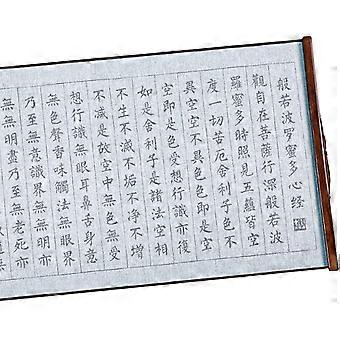 般若波罗蜜多心经
觀自在菩薩行深般若波
羅蜜多時照見五蘊皆空
度一切苦厄舍利子色不
異空空不異色色即是空
空即是色受想行識亦復
如是舍利子是諸法空相
不生不滅不垢不净不增
不減是故空中無色無受
想行識無眼耳鼻舌身意
無色聲香味觸法無眼界
乃至無意識界無無明亦
無無明盡乃至無老死亦